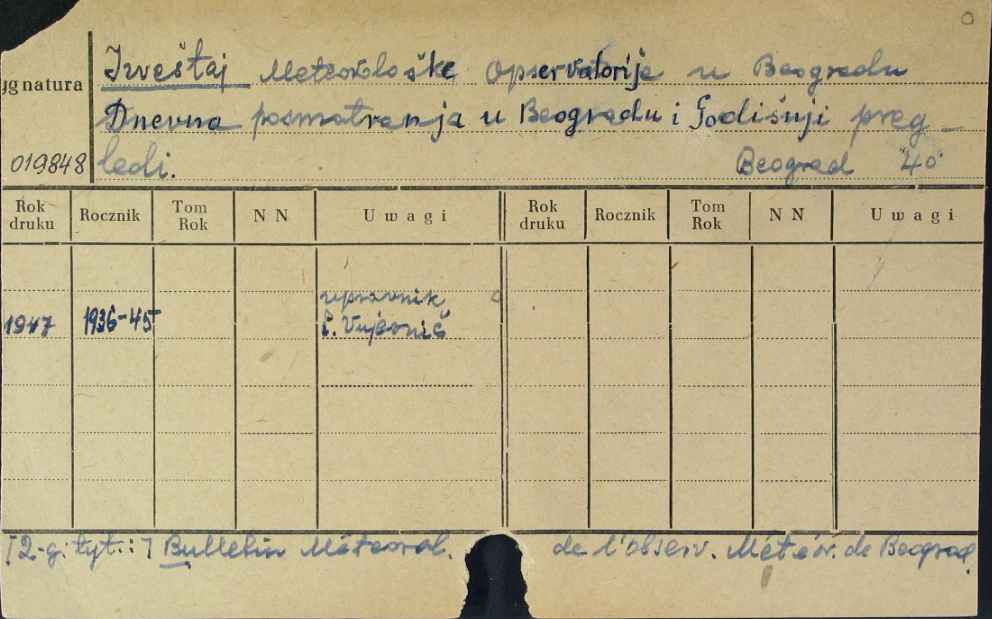 Izveštaj Meteorološke Opservatorije u Beogradu
ygnatura
Dnevna posmatranja u Beogradu i Godišnji preg-
019848 ledi. Beograd 4o
Rok druku Rocznik Tom Rok N N Uwagi Rok druku Rocznik Tom Rok N N Uwagi
upravnik
1947 1936-45 Vujević
[2-g. tyt.:] Bulletin Météorol. de l'observ. Météor. de Beograd.